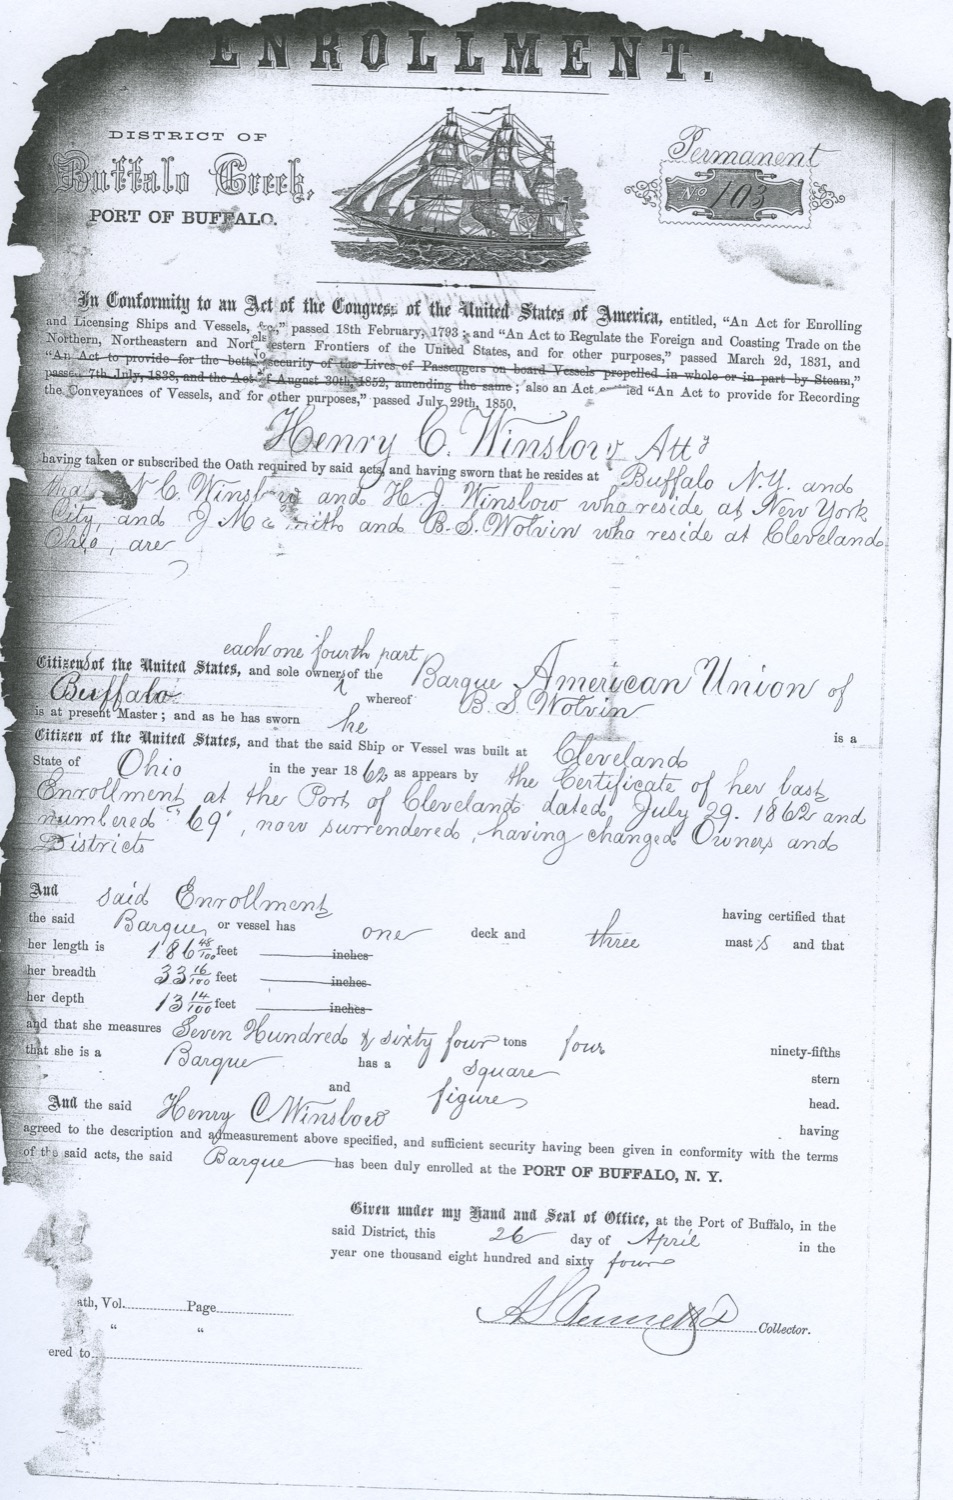 ENROLLMENT.
DISTRICT OF
Buffalo Creek,
PORT OF BUFFALO.
Permanent
No 103
In Conformity to an Act of the Congress of the United States of America, entitled, "An Act for Enrolling
and Licensing Ships and Vessels, &c.," passed 18th February, 1793; and "An Act to Regulate the Foreign and Coasting Trade on the
Northern, Northeastern and Northwestern Frontiers of the United States, and for other purposes," passed March 2d, 1831, and
"An Act to provide for the better security of the Lives of Passengers on board Vessels propelled in whole or in part by Steam,"
passed 7th July, 1838, and the Act of August 30th, 1852, amending the same; also an Act entitled "An Act to provide for Recording
the Conveyances of Vessels, and for other purposes," passed July 29th, 1850,
Henry C. Winslow Atty
having taken or subscribed the Oath required by said acts, and having sworn that he resides at Buffalo N.Y. and
that N C. Winslow and H. J. Winslow who reside at New York
City, and J Mc Smith and B. S. Wolvin who reside at Cleveland
Ohio, are
each one fourth part
Citizens of the United States, and sole owners of the Barque American Union of
Buffalo whereof B. S. Wolvin
is at present Master; and as he has sworn he is a
Citizen of the United States, and that the said Ship or Vessel was built at Cleveland
State of Ohio in the year 1862 as appears by the Certificate of her last
Enrollment at the Port of Cleveland dated July 29. 1862 and
numbered "69", now surrendered, having changed Owners and
Districts
And said Enrollment having certified that
the said Barque or vessel has one deck and three masts and that
her length is 186 48/100 feet inches
her breadth 33 16/100 feet inches
her depth 13 14/100 feet inches
and that she measures Seven Hundred & sixty four tons four ninety-fifths
that she is a Barque has a square stern
and figure head.
And the said Henry C Winslow having
agreed to the description and admeasurement above specified, and sufficient security having been given in conformity with the terms
of the said acts, the said Barque has been duly enrolled at the PORT OF BUFFALO, N. Y.
Given under my Hand and Seal of Office, at the Port of Buffalo, in the
said District, this 26 day of April in the
year one thousand eight hundred and sixty four
ath, Vol. Page
" "
Collector.
ered to